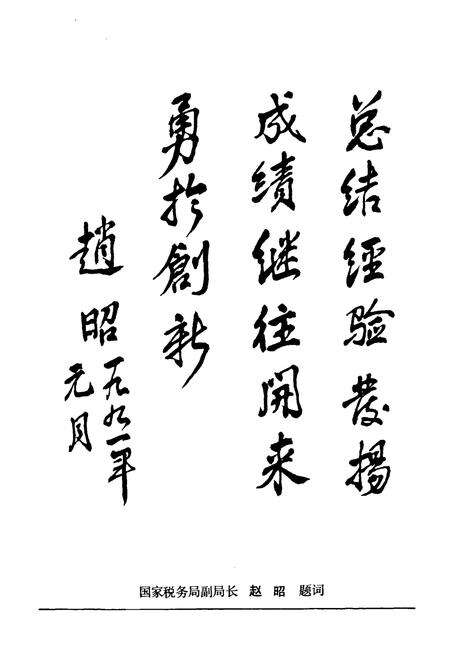 总结经验發揚
成绩继往開来
勇於創新
趙昭
一九九一年
元月
国家税务局副局长 赵 昭 题词